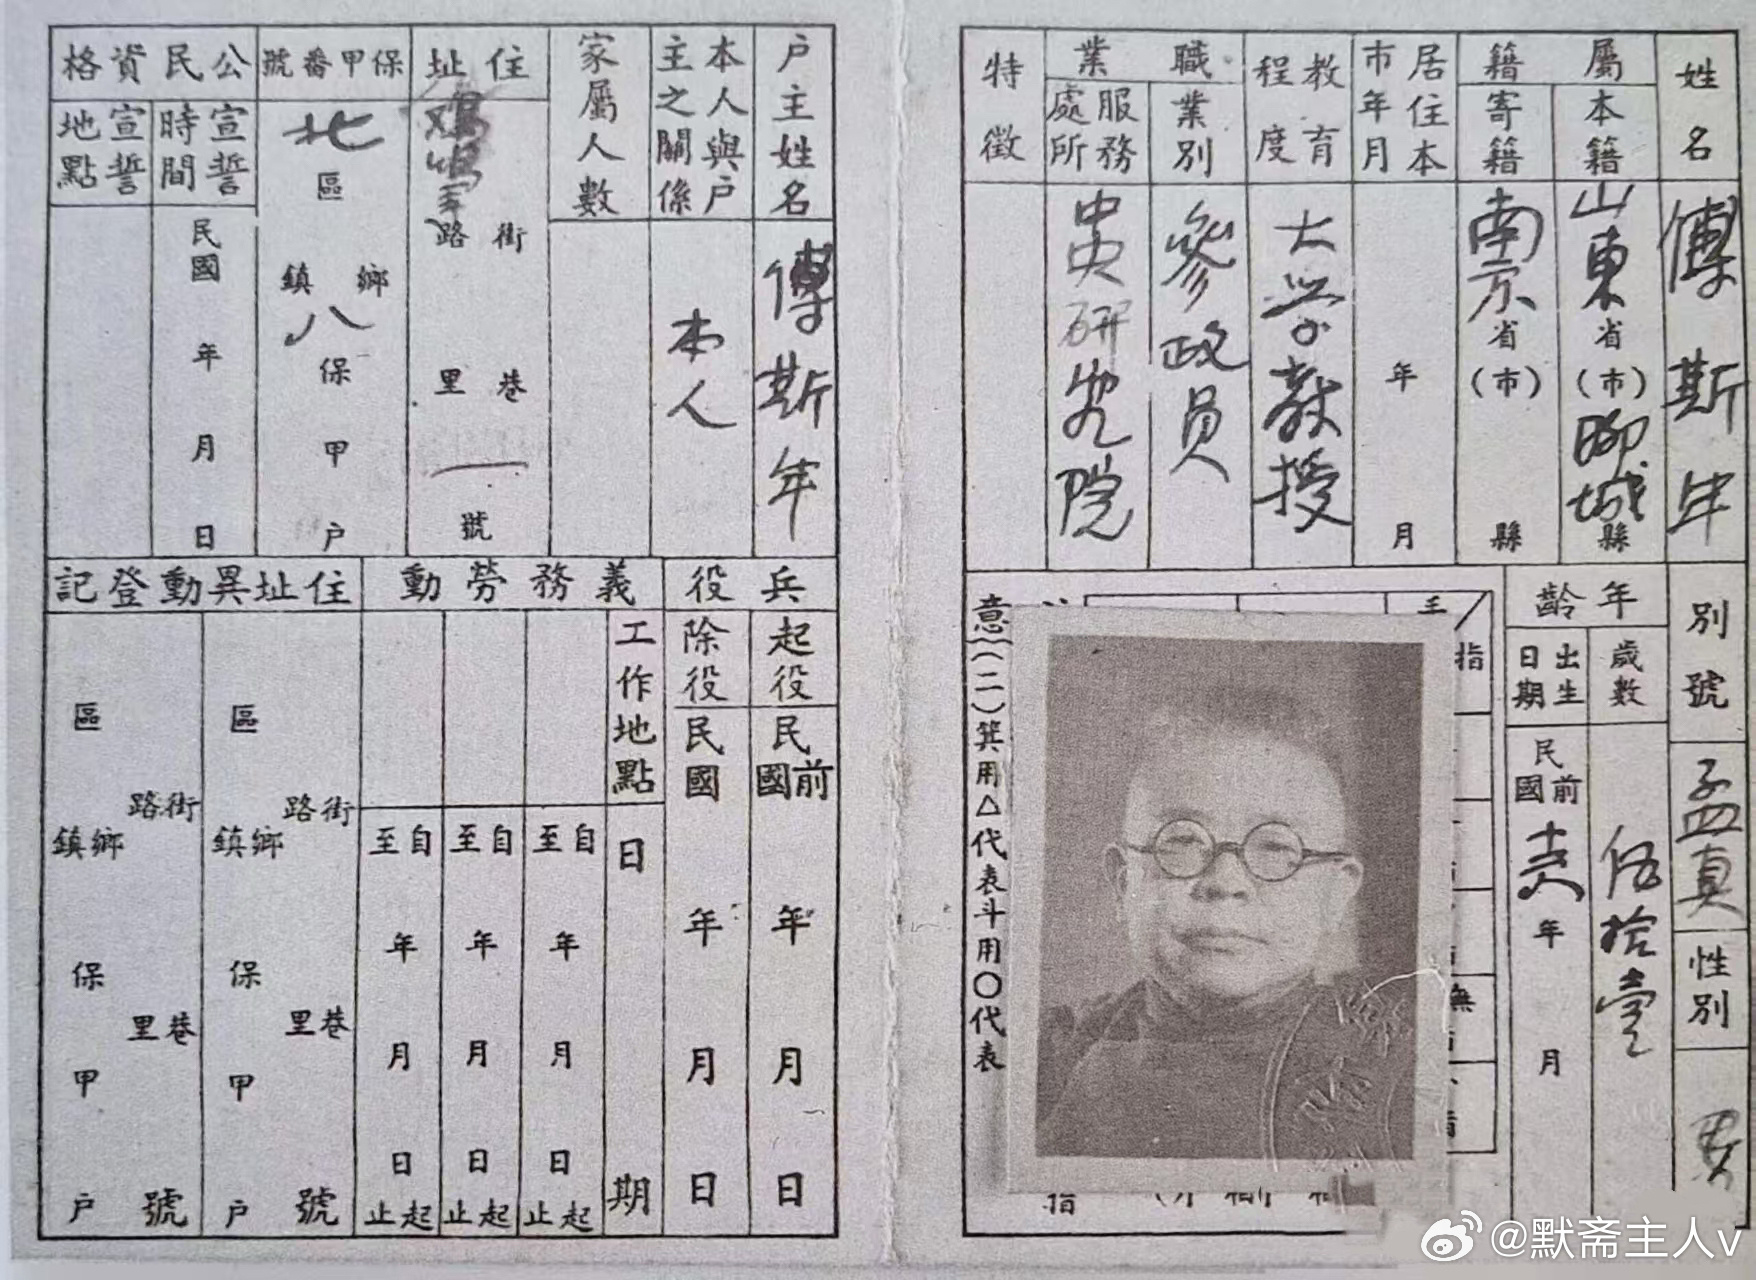 姓名
傅斯年
屬籍
本籍
山東省（市）聊城縣
寄籍
南京省（市）縣
居住本市年月
年月
教育程度
大学教授
職業
業別
參政员
服務處所
中央研究院
特徵
別號
孟真
性別
男
年齡
歲數
伍拾壹
出生日期
民國前
年月
指
意（二）箕用△代表斗用○代表
户主姓名
傅斯年
本人與户主之關係
本人
家屬人數
住址
鷄鳴寺路街
里巷
一號
保甲番號
北區
鄉鎮
八保
甲
户
公民資格
宣誓時間
民國年月日
宣誓地點
兵役
起役
民國前年月日
除役
民國年月日
義務勞動
工作地點
日期
自年月日起
至止
自年月日起
至止
自年月日起
至止
住址異動登記
街路
巷里
號
區
鄉鎮
保
甲
户
街路
巷里
號
區
鄉鎮
保
甲
户
@默斋主人v